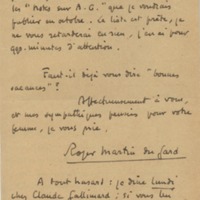 les "Notes sur A.G." que je voudrais
publier en octobre. Le livre est prêt, je
ne vous retarderai en rien, j'en ai pour
qqs. minutes d'attention.
Faut-il déjà vous dire "bonnes
vacances" ?
Affectueusement à vous,
et mes sympathiques pensées pour votre
femme, je vous prie.
Roger Martin du Gard
A tout hasard : je dîne lundi
chez Claude Gallimard ; si vous lui